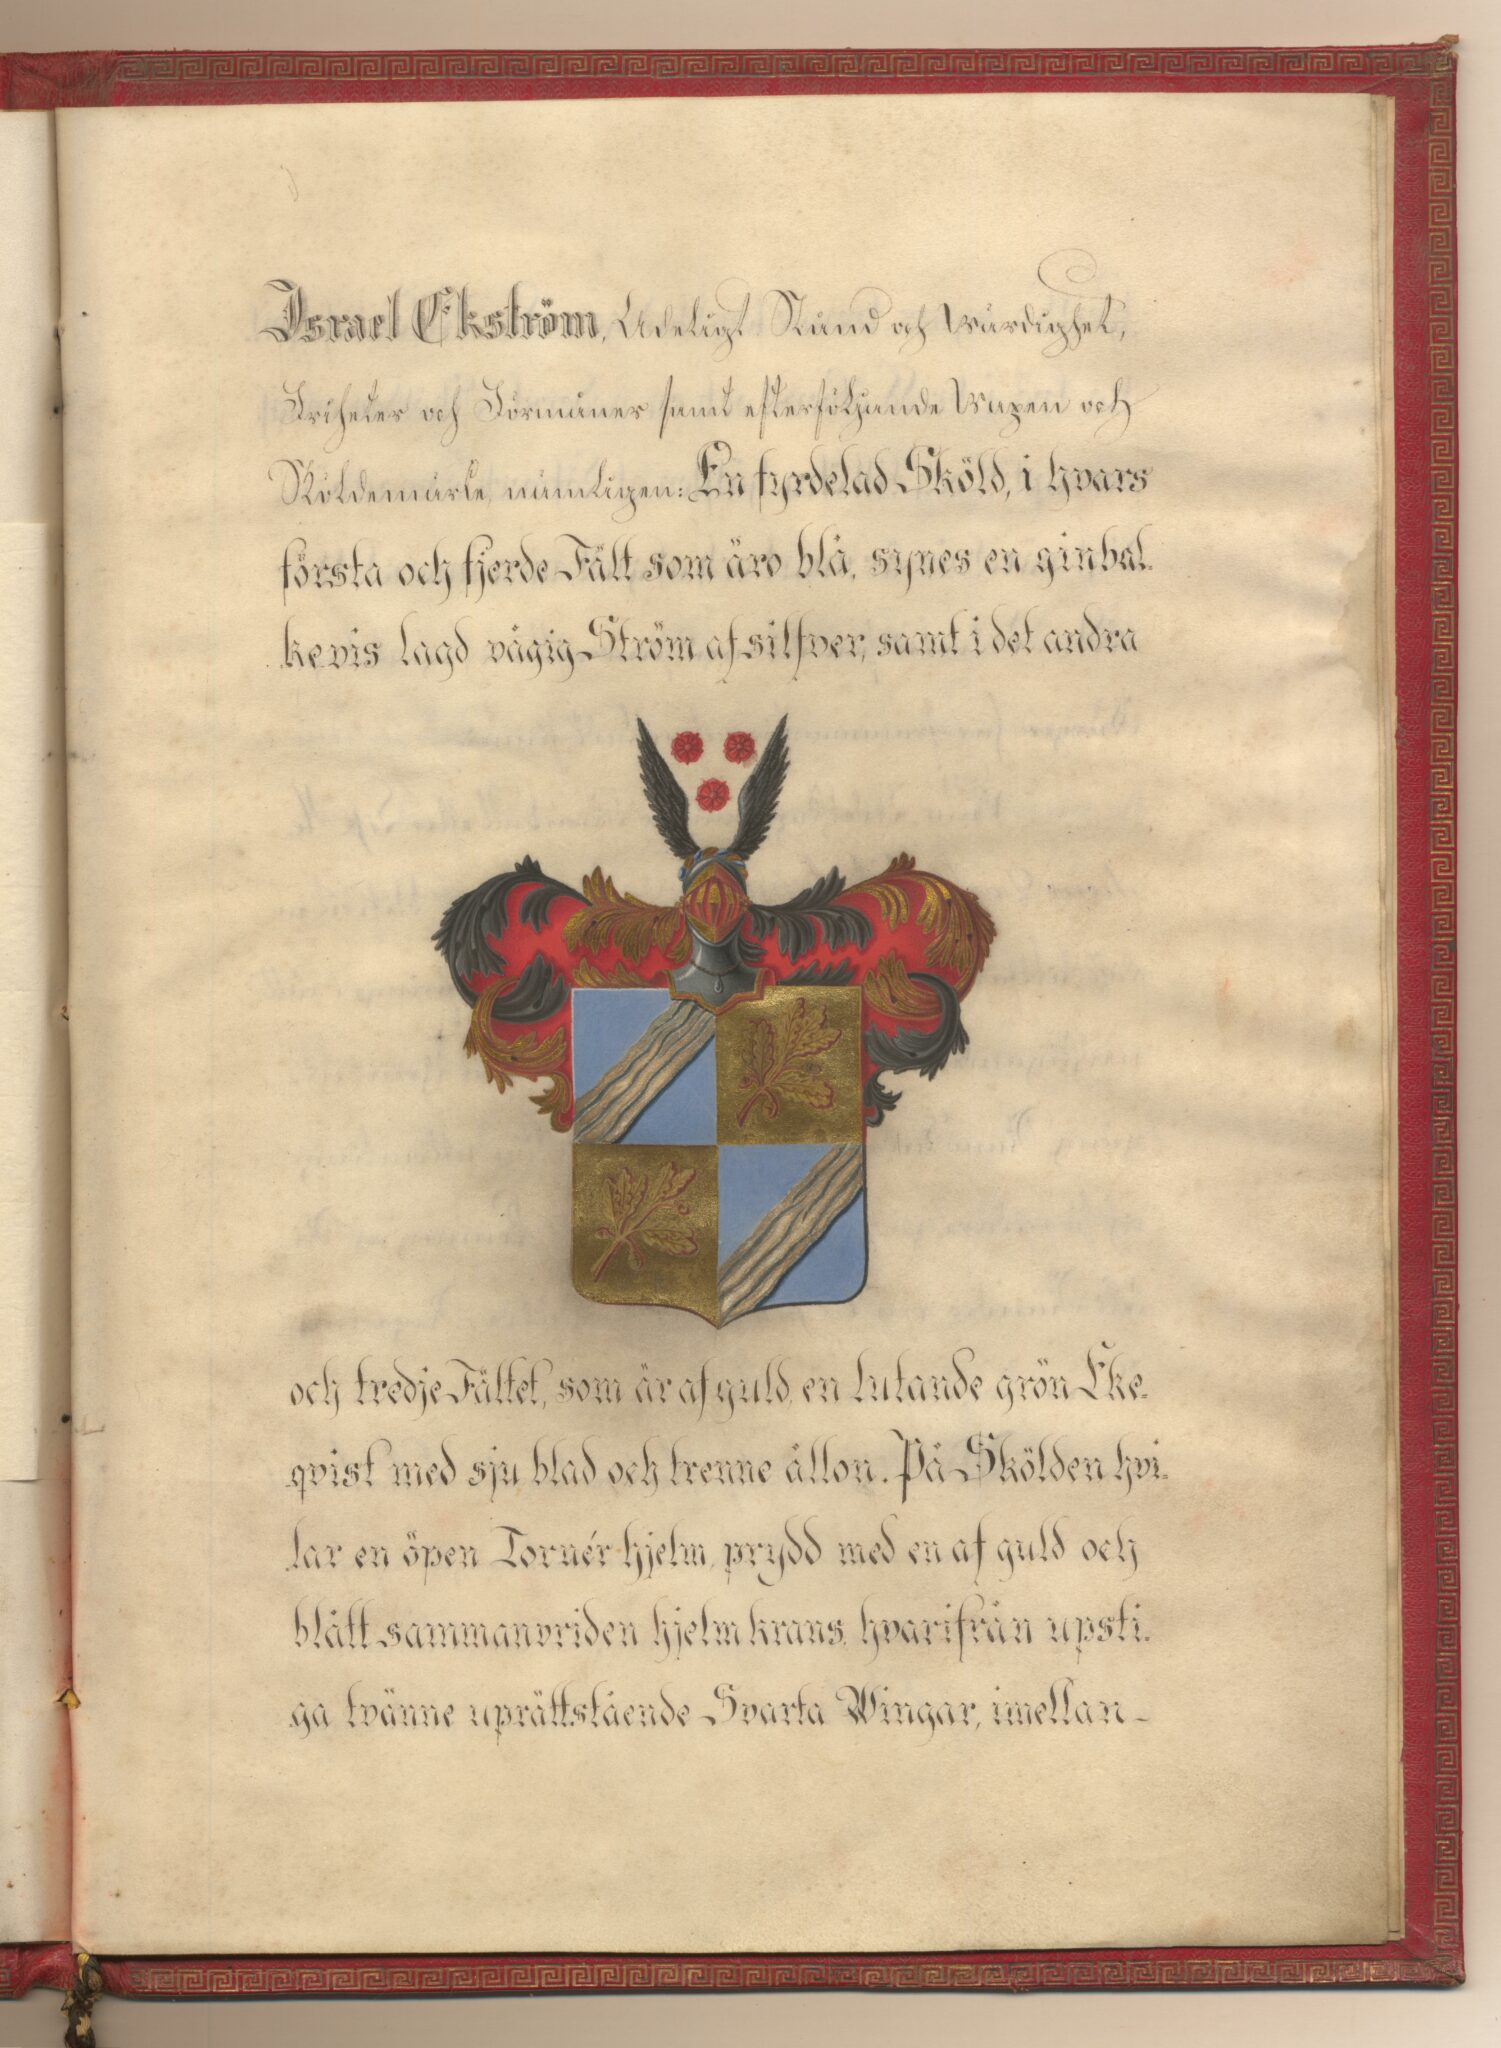 Israel Ekström, Adeligt Stånd och Wärdighet,
Friheter och Förmåner samt efterföljande Wapen och
Sköldemärke, nämligen: En fyrdelad Sköld, i hvars
första och fjerde Fält som äro blå, synes en ginbal-
kevis lagd vågig Ström af silfver, samt i det andra
och tredje Fältet, som är af guld, en lutande grön Eke-
qvist med sju blad och trenne ållon. På Skölden hvi-
lar en öpen Tornér hjelm, prydd med en af guld och
blått sammanvriden hjelmkrans, hvarifrån upsti-
ga tvänne uprättstående Svarta Wingar, imellan-